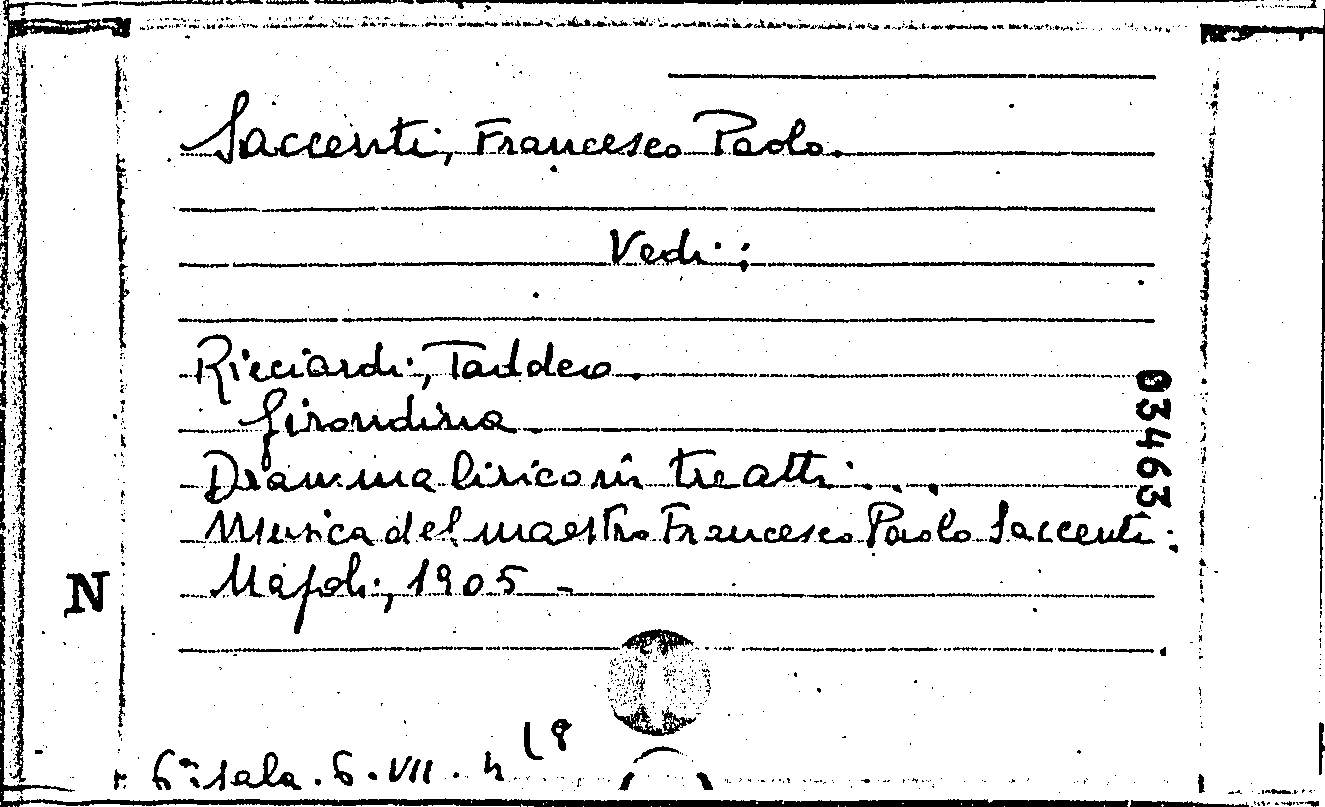 Saccenti, Francesco Paolo.
Vedi:
Ricciardi, Taddeo.
Girondina.
Dramma lirico in tre atti...
Musica del maestro Francesco Paolo Saccenti.
Napoli, 1905 -
03463
N
6ª sala. 6. VII. h